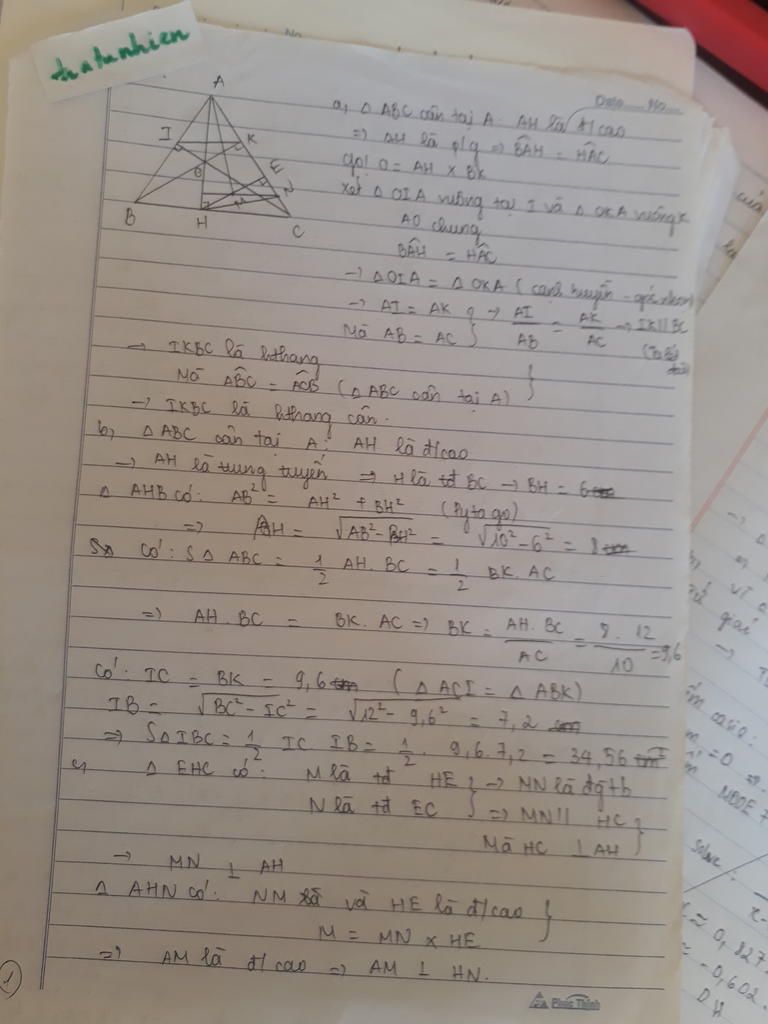 thatunhien
Date No
A
I
K
O
E
N
M
B
H
C
a, Δ ABC cân tại A. AH là đ/cao
=> AH là p/g => BÂH = HÂC
gọi O = AH x BK
xét Δ OIA vuông tại I và Δ OKA vuông K
AO chung
BÂH = HÂC
-> Δ OIA = Δ OKA (cạnh huyền - góc nhọn)
-> AI = AK } -> AI/AB = AK/AC -> IK // BC
Mà AB = AC (Ta lét đảo)
-> IKBC là hthang
Mà ABC = ACB (Δ ABC cân tại A) }
-> IKBC là hthang cân.
b, Δ ABC cân tại A: AH là đ/cao
-> AH là trung tuyến => H là tđ BC -> BH = 6
Δ AHB có: AB² = AH² + BH² (Pytago)
=> AH = √AB² - BH² = √10² - 6² = 8
Có: SΔ ABC = 1/2 AH. BC = 1/2 BK. AC
=> AH. BC = BK. AC => BK = AH. BC/AC = 8. 12/10 = 9,6
Có: IC = BK = 9,6 (Δ ACI = Δ ABK)
IB = √BC² - IC² = √12² - 9,6² = 7,2
=> SΔ IBC = 1/2 IC IB = 1/2 . 9,6. 7,2 = 34,56
c, Δ EHC có: M là tđ HE } -> MN là đg tb
N là tđ EC => MN // HC }
Mà HC ⊥ AH
-> MN ⊥ AH
Δ AHN có: NM và HE là đ/cao }
M = MN x HE
=> AM là đ/cao => AM ⊥ HN.
1
Phúc Thịnh
MODE 7
casio:
= 0
solve:
≈ 0,827
- 0,602